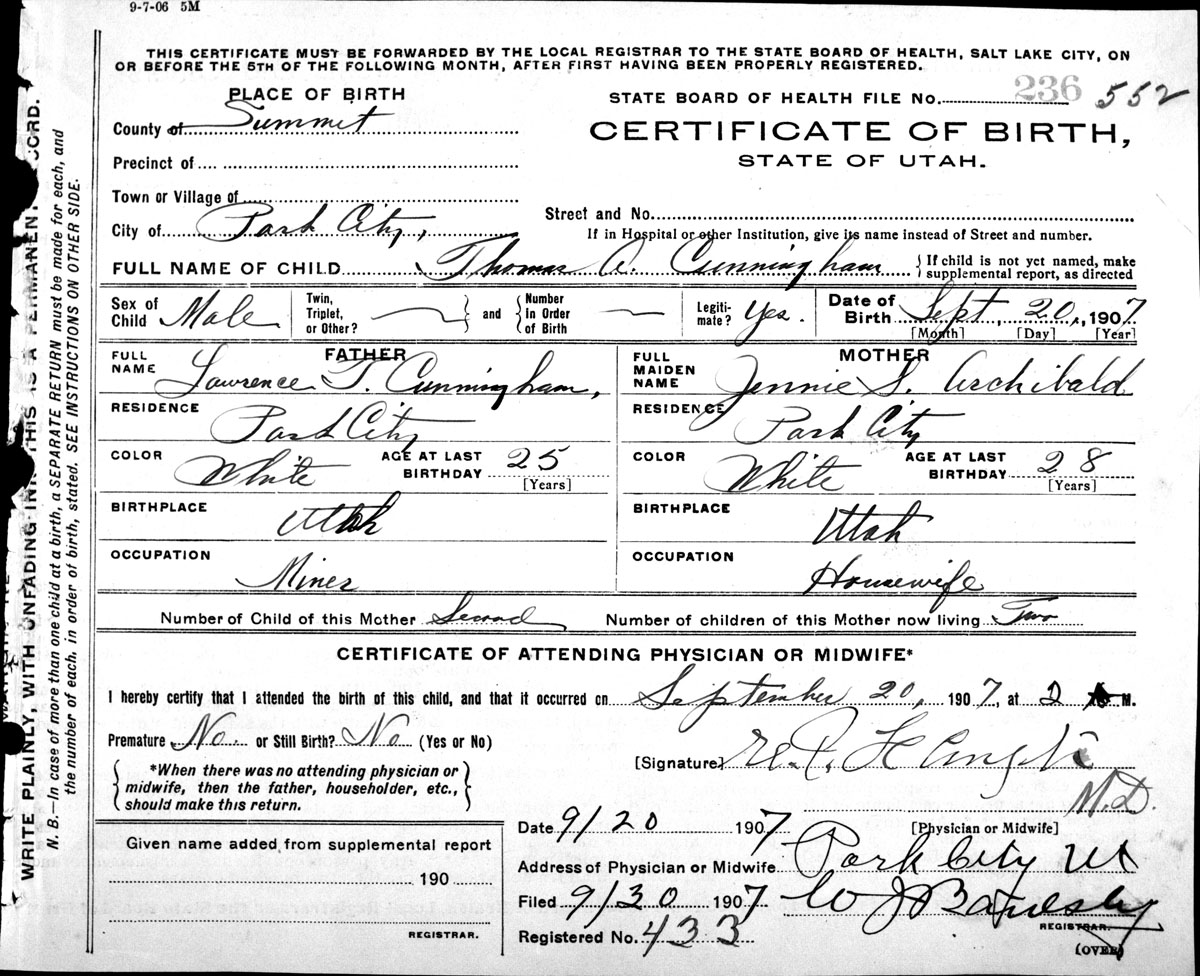 9-7-06 5M
THIS CERTIFICATE MUST BE FORWARDED BY THE LOCAL REGISTRAR TO THE STATE BOARD OF HEALTH, SALT LAKE CITY, ON
OR BEFORE THE 5TH OF THE FOLLOWING MONTH, AFTER FIRST HAVING BEEN PROPERLY REGISTERED.
PLACE OF BIRTH
STATE BOARD OF HEALTH FILE No. 236 552
County of Summit
CERTIFICATE OF BIRTH,
STATE OF UTAH.
Precinct of
Town or Village of
Street and No.
City of Park City,
If in Hospital or other Institution, give its name instead of Street and number.
FULL NAME OF CHILD Thomas A. Cunningham { If child is not yet named, make
supplemental report, as directed
Sex of Child Male Twin, Triplet, or Other? and Number in Order of Birth Legiti-mate? Yes. Date of Birth Sept. 20, 1907
[Month] [Day] [Year]
FATHER MOTHER
FULL NAME Lawrence T. Cunningham, FULL MAIDEN NAME Jennie S. Archibald
RESIDENCE Park City RESIDENCE Park City
COLOR White AGE AT LAST BIRTHDAY 25 [Years] COLOR White AGE AT LAST BIRTHDAY 28 [Years]
BIRTHPLACE Utah BIRTHPLACE Utah
OCCUPATION Miner OCCUPATION Housewife
Number of Child of this Mother Second Number of children of this Mother now living Two
CERTIFICATE OF ATTENDING PHYSICIAN OR MIDWIFE*
I hereby certify that I attended the birth of this child, and that it occurred on September 20, 1907, at 2 M.
Premature No. or Still Birth? No (Yes or No)
[Signature] M.D.
*When there was no attending physician or
midwife, then the father, householder, etc.,
should make this return.
Date 9/20 1907 [Physician or Midwife]
Given name added from supplemental report
Address of Physician or Midwife Park City Ut
190
Filed 9/30 1907 W J
REGISTRAR.
Registered No. 433
REGISTRAR.
(OVER)
WRITE PLAINLY, WITH UNFADING INK THIS IS A PERMANENT RECORD.
N. B.—In case of more than one child at a birth, a SEPARATE RETURN must be made for each, and
the number of each, in order of birth, stated. SEE INSTRUCTIONS ON OTHER SIDE.